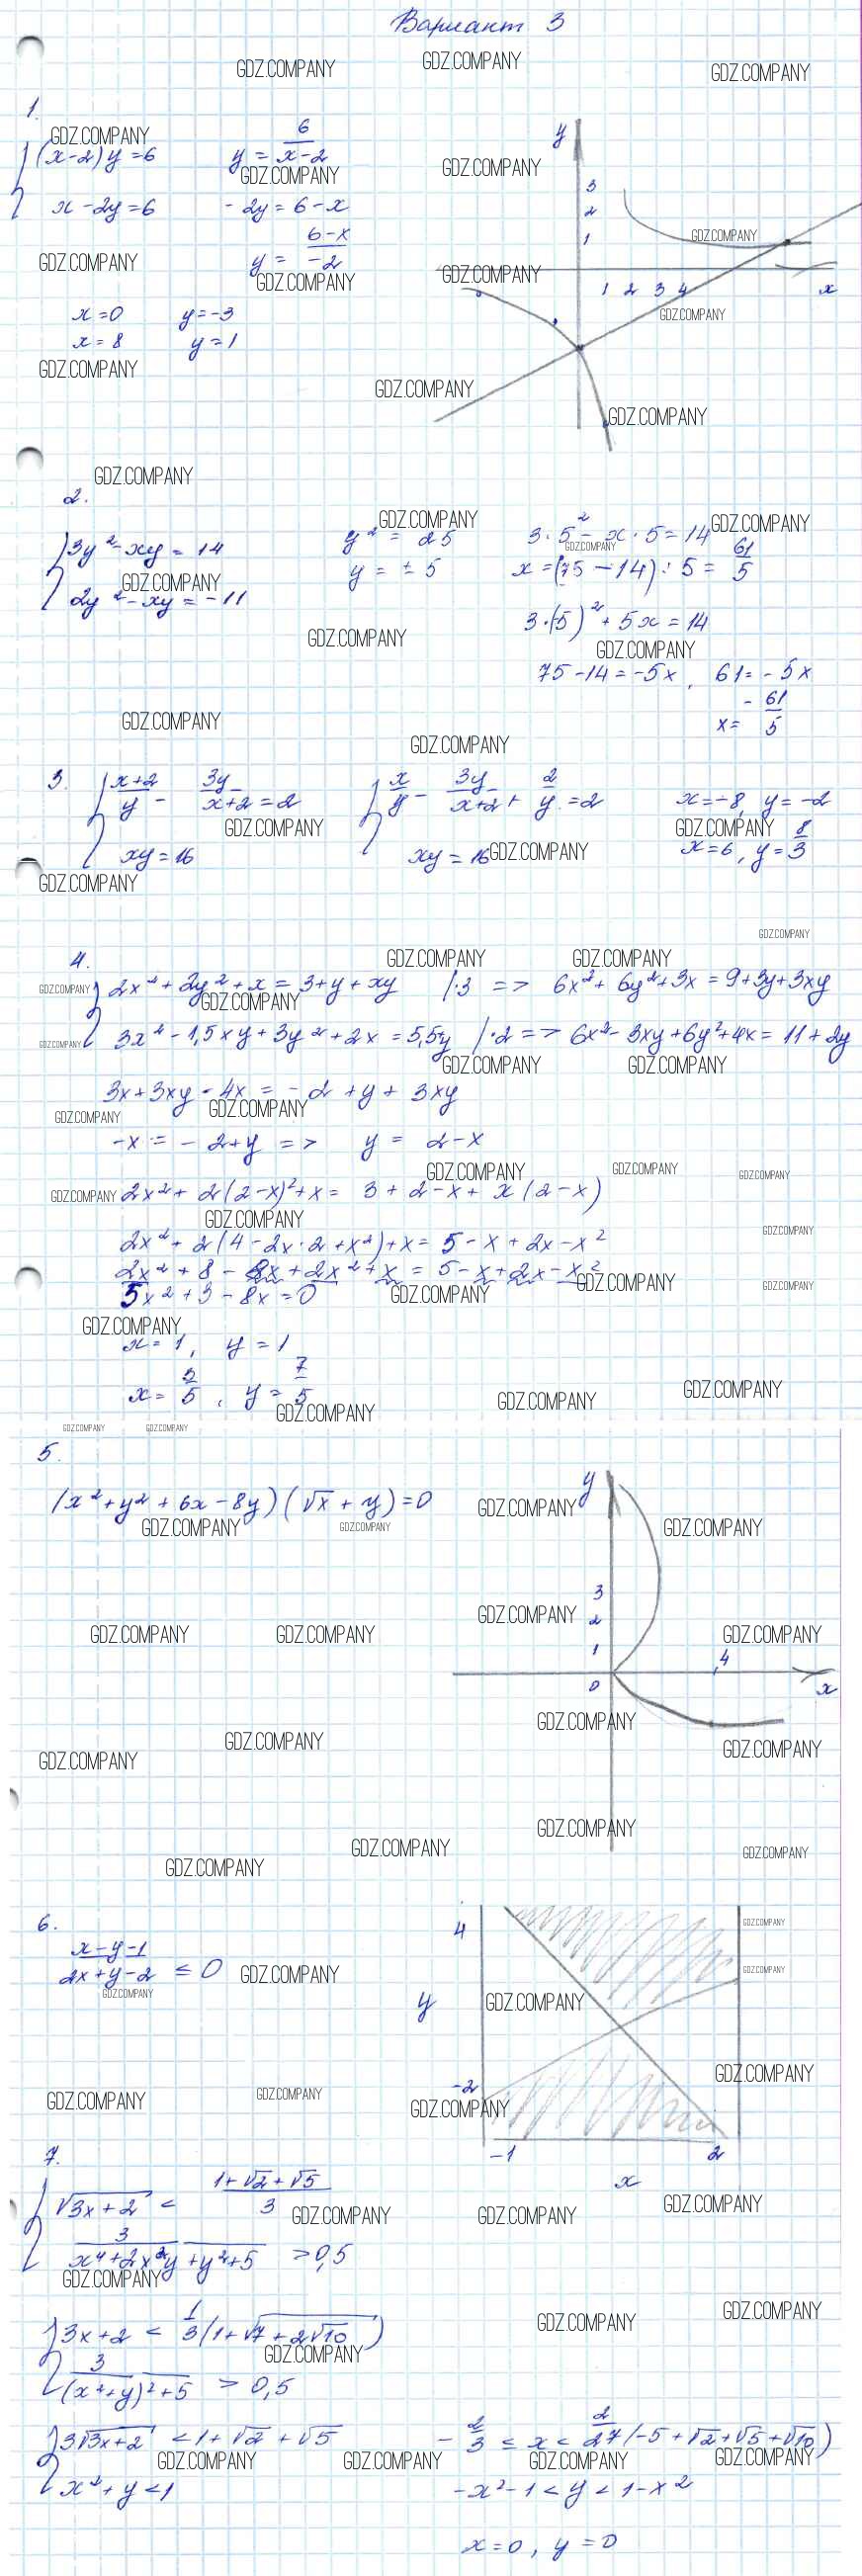 Вариант 3
1.
(x-2)y=6 y = 6/(x-2)
x-2y=6 -2y=6-x
y = (6-x)/-2
x=0 y=-3
x=8 y=1
y
3
2
1
1 2 3 4 x
2.
3y²-xy=14 y²=25 3·5²-x·5=14
2y²-xy=-11 y=±5 x=(75-14):5=61/5
3·(-5)²+5x=14
75-14=-5x, 61=-5x
x=-61/5
3. (x+2)/y - 3y/(x+2)=2 x/y - 3y/(x+2) + 2/y=2 x=-8, y=-2
xy=16 xy=16 x=6, y=8/3
4.
2x²+2y²+x=3+y+xy /·3 => 6x²+6y²+3x=9+3y+3xy
3x²-1,5xy+3y²+2x=5,5+y /·2 => 6x²-3xy+6y²+4x=11+2y
3x+3xy-4x=-2+y+3xy
-x=-2+y => y=2-x
2x²+2(2-x)²+x=3+2-x+x(2-x)
2x²+2(4-2x·2+x²)+x=5-x+2x-x²
2x²+8-8x+2x²+x=5-x+2x-x²
5x²+3-8x=0
x=1, y=1
x=3/5, y=7/5
5.
(x²+y²+6x-8y)(√x+y)=0
y
3
2
1
0 4 x
6.
(x-y-1)/(2x+y-2) ≤ 0
4
y
-2
-1 2
x
7.
√(3x+2) < (1+√2+√5)/3
3/(x⁴+2x²y+y²+5) >0,5
3x+2 < 1/3(1+√(7+2√10))
3/((x²+y)²+5) > 0,5
3√(3x+2) <1+√2+√5 -2/3 ≤ x < 2/27(-5+√2+√5+√10)
x²+y<1 -x²-1<y<1-x²
x=0, y=0
GDZ.COMPANY